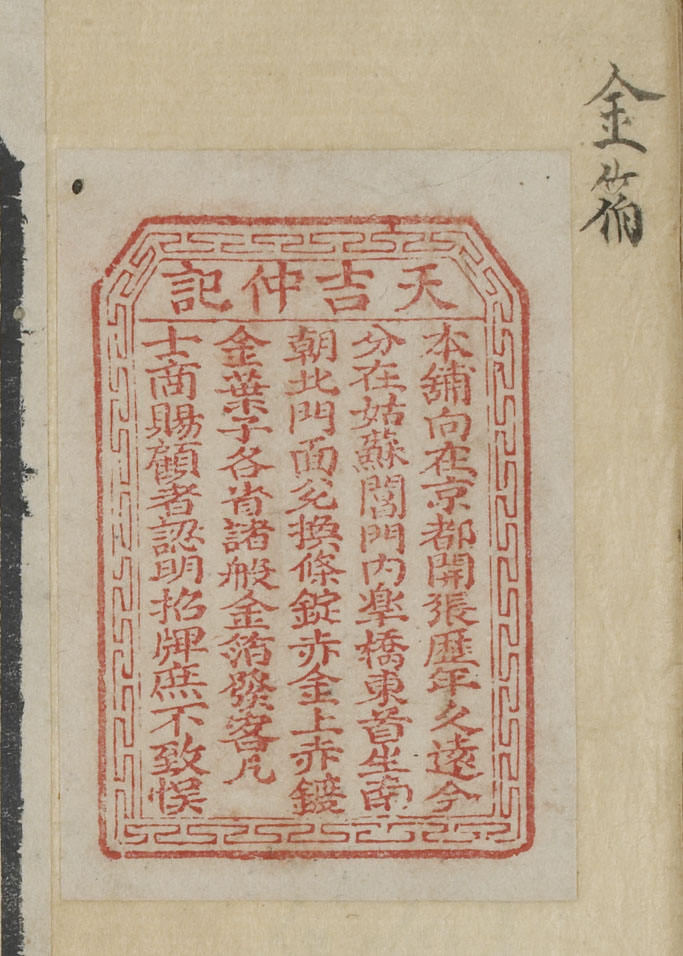 金箔
天吉仲記
本舖向在京都開張歷年久遠今
分在姑蘇閶門内皋橋東首坐南
朝北門面兌換條錠赤金上赤鍍
金葉子各省諸般金箔發客凡
士商賜顧者認明招牌庶不致悮